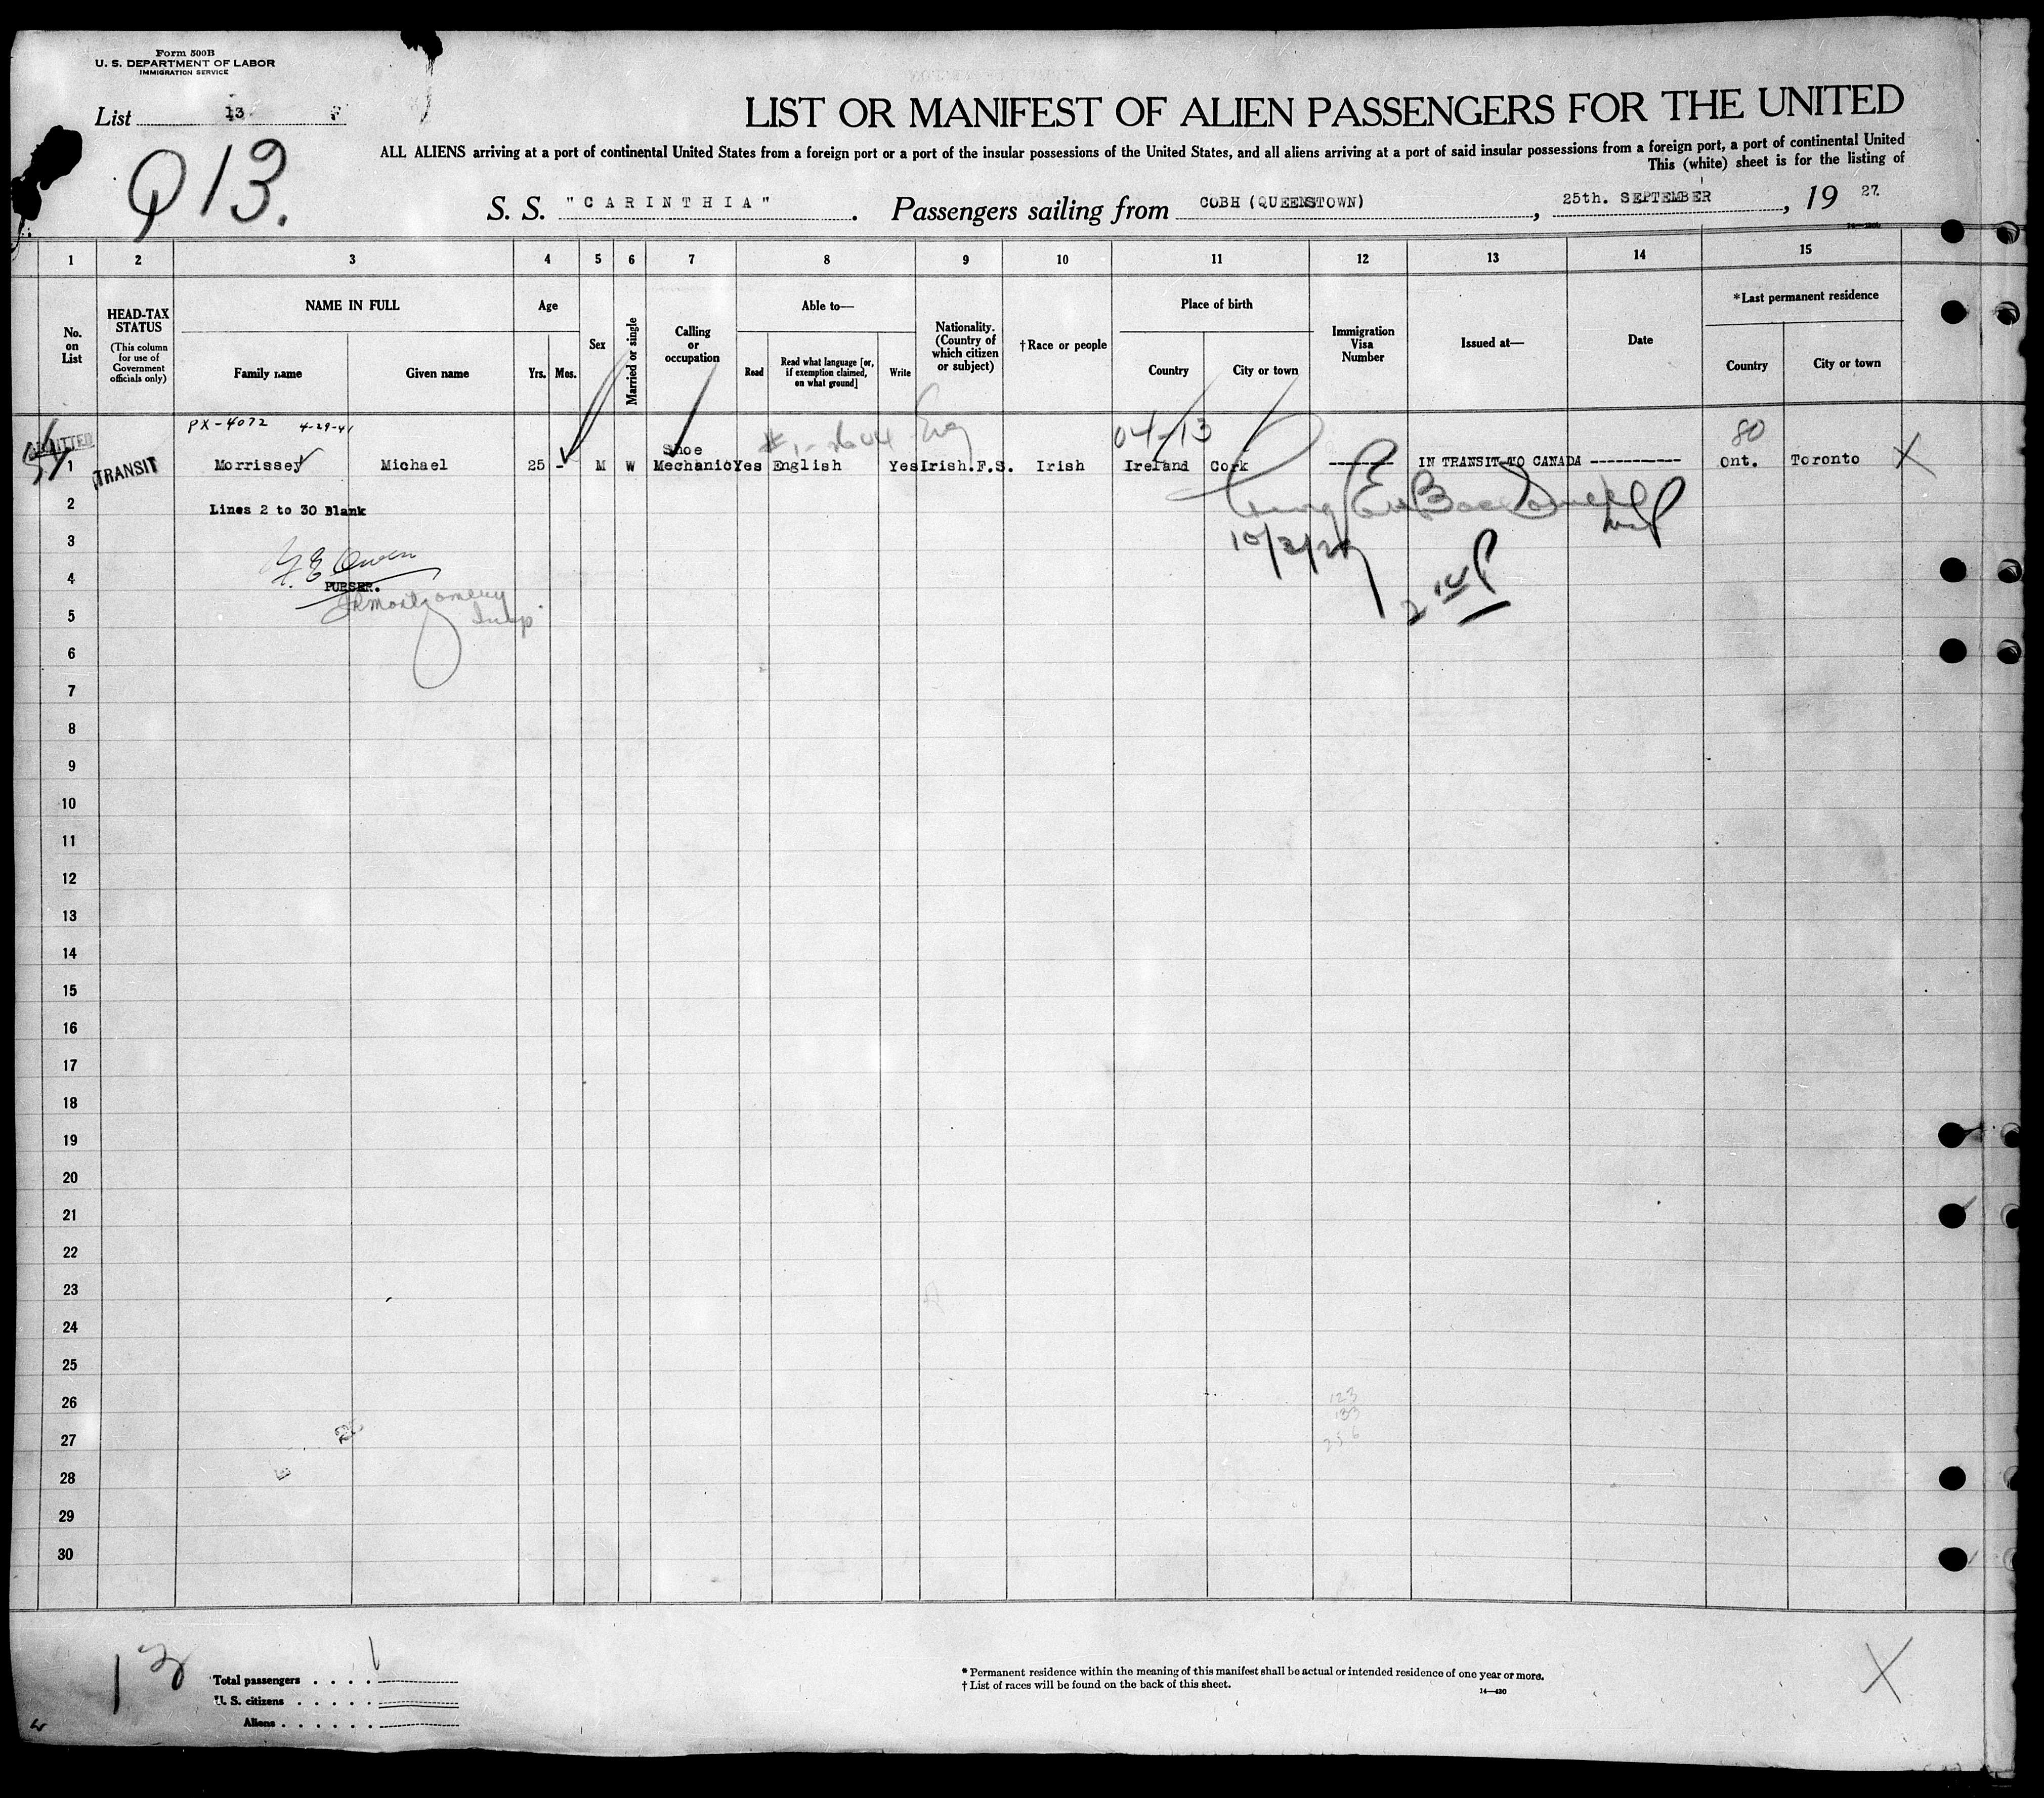 Form 500B
U. S. DEPARTMENT OF LABOR
IMMIGRATION SERVICE
List 13
Q 13.
LIST OR MANIFEST OF ALIEN PASSENGERS FOR THE UNITED
ALL ALIENS arriving at a port of continental United States from a foreign port or a port of the insular possessions of the United States, and all aliens arriving at a port of said insular possessions from a foreign port, a port of continental United
This (white) sheet is for the listing of
S. S. "CARINTHIA". Passengers sailing from COBH (QUEENSTOWN), 25th. SEPTEMBER, 19 27.
1 2 3 4 5 6 7 8 9 10 11 12 13 14 15
No. on List
HEAD-TAX STATUS
(This column for use of Government officials only)
NAME IN FULL
Family name
Given name
Age
Yrs.
Mos.
Sex
Married or single
Calling or occupation
Able to—
Read
Read what language [or, if exemption claimed, on what ground]
Write
Nationality. (Country of which citizen or subject)
†Race or people
Place of birth
Country
City or town
Immigration Visa Number
Issued at—
Date
*Last permanent residence
Country
City or town
PX-4072 4-29-41
04-13
80
ADMITTED
1 TRANSIT Morrissey Michael 25 - M W Shoe Mechanic Yes English Yes Irish.F.S. Irish Ireland Cork ------- IN TRANSIT TO CANADA ----------- Ont. Toronto X
2 Lines 2 to 30 Blank
3
4 PURSER.
JRMontgomery
Insp.
5
6
7
8
9
10
11
12
13
14
15
16
17
18
19
20
21
22
23
24
25
26
27
28
29
30
123
133
256
13
Total passengers
U. S. citizens
Aliens
* Permanent residence within the meaning of this manifest shall be actual or intended residence of one year or more.
† List of races will be found on the back of this sheet.
14—430
X